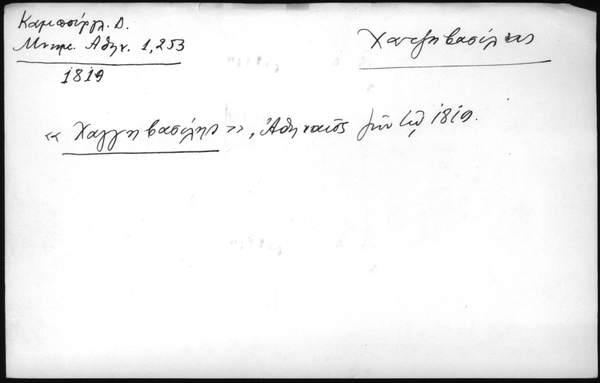 Καμπούρογλ. Δ.
Μνημ. Αθην. 1,253
1819
Χατζηβασίλης
« Χατζηβασίλης », Ἀθηναῖος ζῶν τῷ 1819.